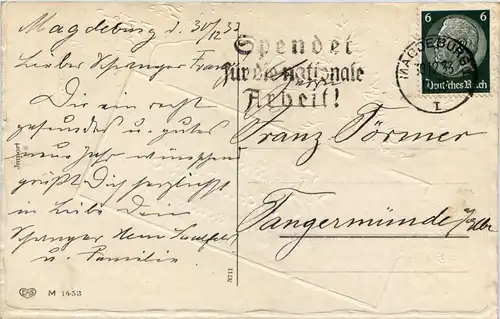 Magdeburg d. 30/12 33
Lieber Schwager Franz
Dir ein recht
gesundes u. gutes
neue Jahr wünschen
grüßt Dich herzlichst
in Liebe Dein
Schwager
u. Familie
Spendet
für die nationale
Arbeit!
MAGDEBURG
1
6 6
Deutsches Reich
Herrn
Franz Pörmer
Tangermünde a/Elbe
Import
3711
EAS
M 1453